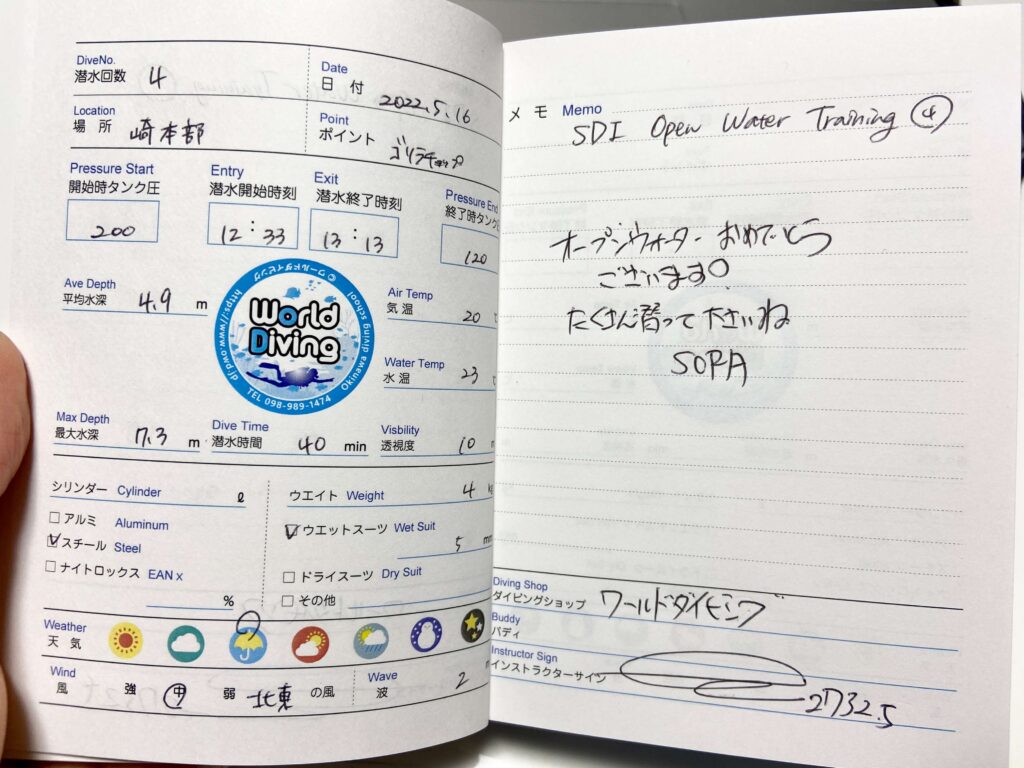 DiveNo.
潜水回数 4
Date
日 付 2022.5.16
Location
場 所 崎本部
Point
ポイント ゴリラチョップ
Pressure Start
開始時タンク圧
200
Entry
潜水開始時刻
12:33
Exit
潜水終了時刻
13:13
Pressure End
終了時タンク
120
Ave Depth
平均水深 4.9 m
World
Diving
©ワールドダイビング
https://www.owd.jp
Okinawa diving school
TEL 098-989-1474
Air Temp
気 温 20
Water Temp
水 温 23
Max Depth
最大水深 7.3 m
Dive Time
潜水時間 40 min
Visbility
透視度 10
シリンダー Cylinder ℓ
アルミ Aluminum
スチール Steel
ナイトロックス EAN x
%
ウエイト Weight 4
ウエットスーツ Wet Suit
5
ドライスーツ Dry Suit
その他
Weather
天 気
Wind
風 強 中 弱 北東 の風
Wave
波 2
メ モ Memo
SDI Open Water Training ④
オープンウォーター おめでとう
ございます!
たくさん潜って下さいね
Diving Shop
ダイビングショップ ワールドダイビング
Buddy
バディ
Instructor Sign
インストラクターサイン
27325